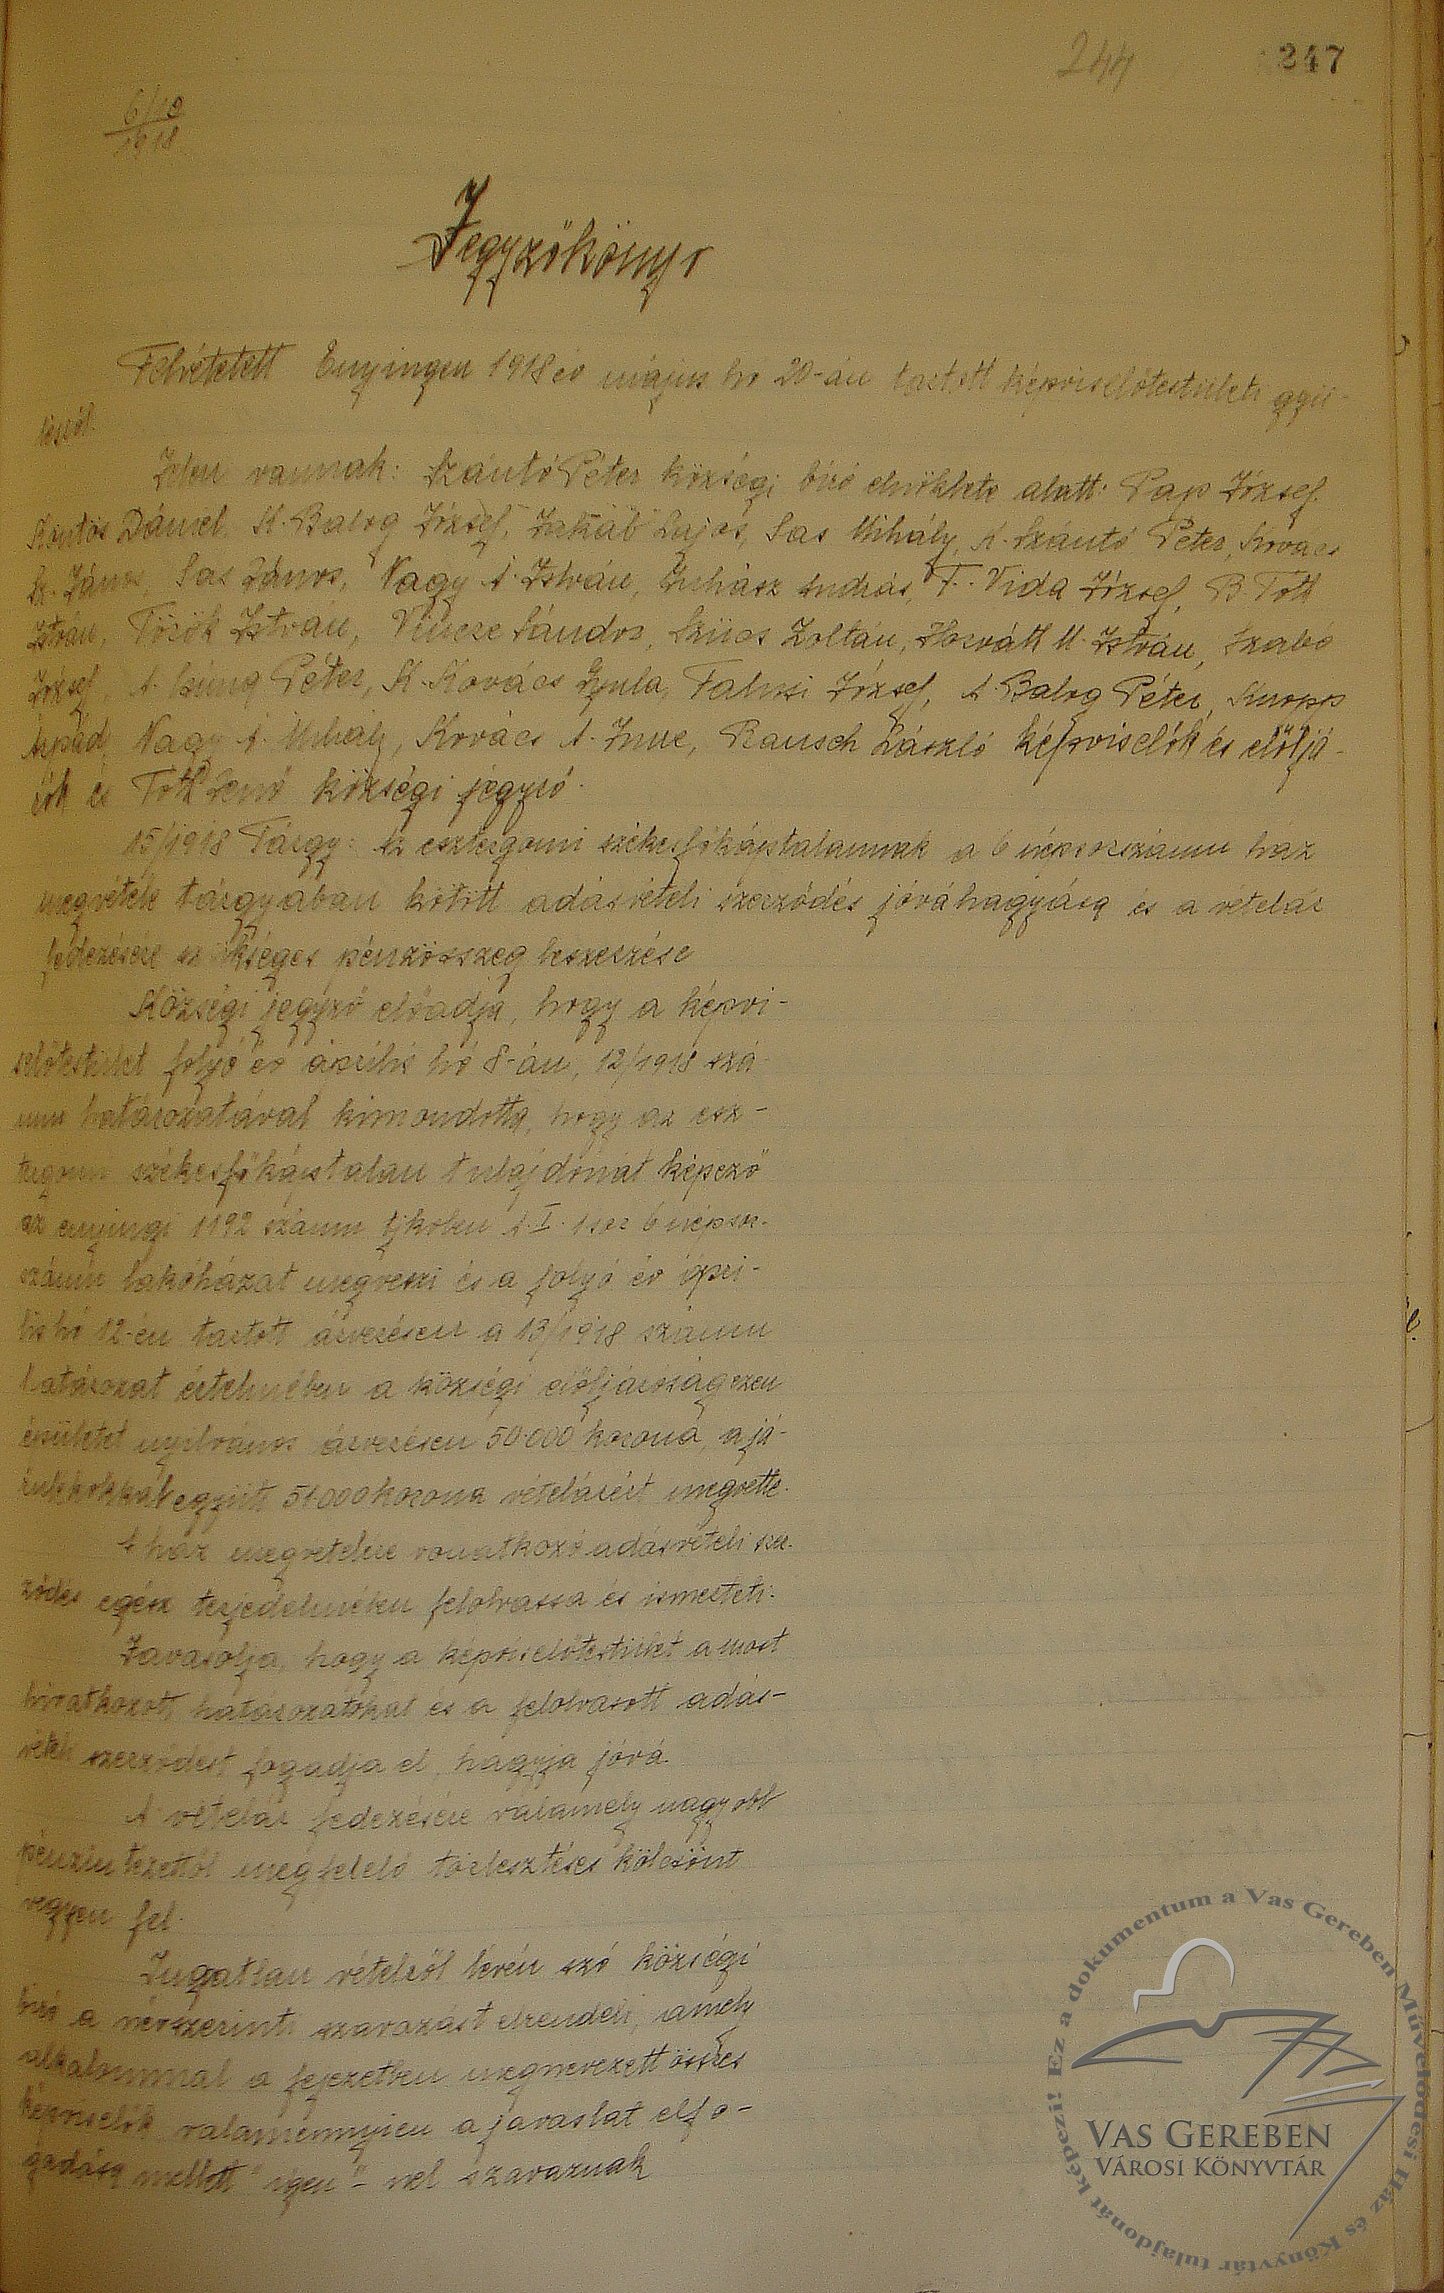 244
247
6/10
1918
Jegyzőkönyv
Felvétetett Enyingen 1918 év május hó 20-án tartott képviselőtestületi gyű-
lésről.
Jelen vannak: Szántó Péter községi bíró elnöklete alatt: Pap József,
Köntös Dániel, K. Balog József, Jakab Lajos, Sas Mihály, A. Szántó Péter, Kovács
Sz. János, Sas János, Nagy A. István, Juhász András, F. Vida József, B. Tóth
István, Török István, Vincze Sándor, Szücs Zoltán, Horváth M. István, Szabó
József, A. Péter, K. Kovács Gyula, József, A. Balog Péter, Knopp
Árpád, Nagy A. Mihály, Kovács A. Imre, Rausch László képviselők és előljá-
rók és Tóth Jenő községi jegyző.
15/1918 Tárgy: Az esztergomi székesfőkáptalannak a 6 népsorszámu ház
megvétele tárgyában kötött adásvételi szerződés jóváhagyása és a vételár
fedezésére szükséges pénzösszeg beszerzése
Községi jegyző előadja, hogy a képvi-
selőtestület folyó év április hó 8-án, 12/1918 szá-
mu határozatával kimondotta, hogy az esz-
tergomi székesfőkáptalan tulajdonát képező
az enyingi 1192 számu tjkvben A.I. 1 sor 6 népsor-
számu lakóházat megveszi és a folyó év ápri-
lis hó 12-én tartott árverésen a 13/1918 számu
határozat értelmében a községi előljáróság ezen
épületet nyilvános árverésen 50.000 korona, a já-
rulékokkal együtt 51000 korona vételárért megvette.
A ház megvételre vonatkozó adásvételi szer-
ződés egész terjedelmében felolvassa és ismerteti.
Javasolja, hogy a képviselőtestület a most
hivatkozott határozatokat és a felolvasott adás-
vételi szerződést fogadja el, hagyja jóvá.
A vételár fedezésére valamely nagyobb
pénzintézettől megfelelő törlesztéses kölcsönt
vegyen fel.
Ingatlan vételről lévén szó községi
bíró a névszerinti szavazást elrendeli, amely
alkalommal a fejezetben megnevezett összes
képviselők valamennyien a javaslat elfo-
gadása mellett "igen"-nel szavaznak
Ez a dokumentum a Vas Gereben Művelődési Ház és Könyvtár tulajdonát képezi!
VAS GEREBEN
VÁROSI KÖNYVTÁR